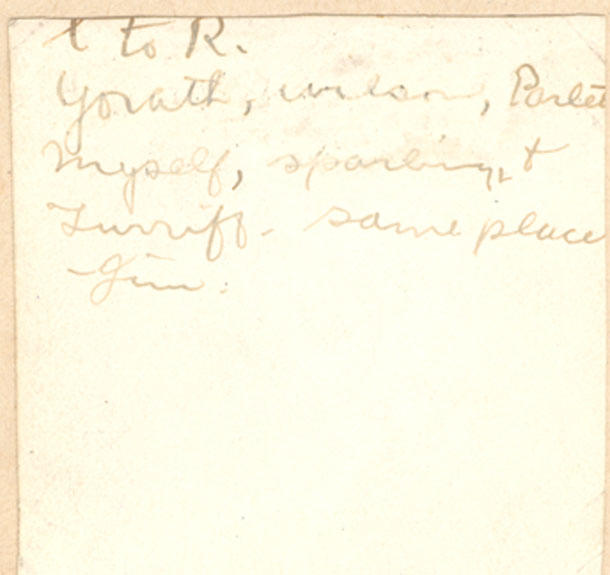 L to R.
Yorath, wilson,
Myself, sparling, &
Turriff - same place
- Jim.